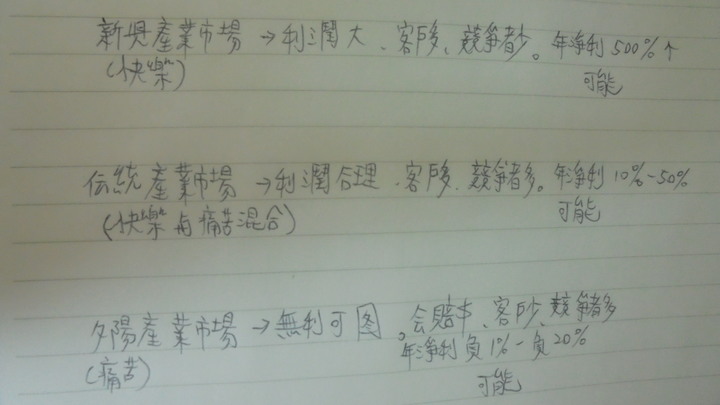 新兴產業市場→利潤大、客戶多、競爭者少。年淨利500%↑
(快樂) 可能
伝統產業市場→利潤合理、客戶多、競爭者多。年淨利10%-50%
(快樂与痛苦混合) 可能
夕陽產業市場→無利可图、会賠本、客戶少、競爭者多
(痛苦) 。年淨利負1%-負20%
可能